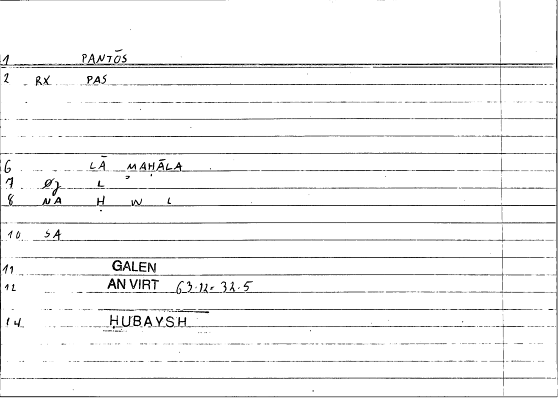 1 PANTŌS
2 RX PAS
6 LĀ MAḤĀLA
7 L
8 NA Ḥ W L
10 SA
11 GALEN
12 AN VIRT
14 ḤUBAYSH